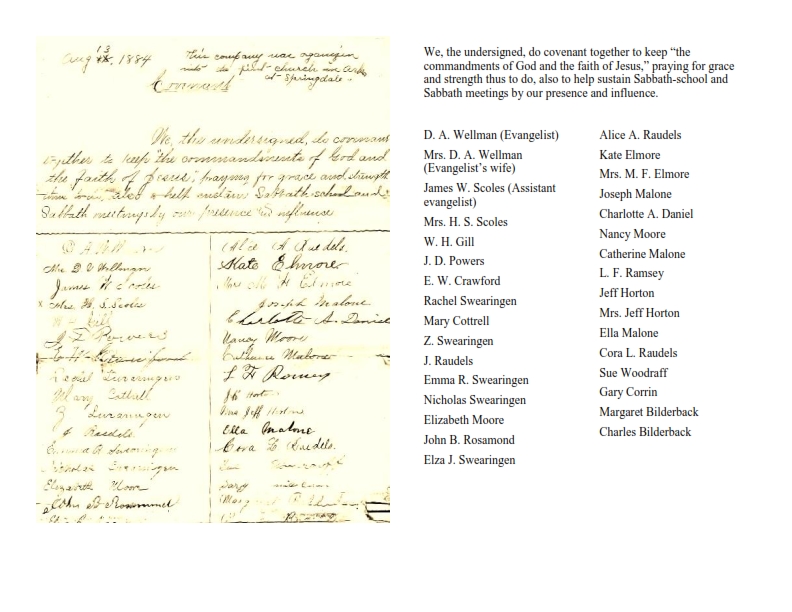 Aug 13, 1884
this company was organized
into do first church in Ark
at Springdale.
Covenant
We, the undersigned, do covenant
together to keep "the commandments of God and
the faith of Jesus," praying for grace and strength
thus to do, also to help sustain Sabbath-school and
Sabbath meetings by our presence and influence
D A Wellman
Mrs. D A Wellman
James W Scoles
x Mrs H. S. Scoles
W H Gill
J. D. Powers
E. W. Crawford
Rachel Swearingen
Mary Cottrell
Z Swearingen
J. Raedels
Emma R Swearingen
Nicholas Swearingen
Elizabeth Moore
John B Rosammond
Alice A Raedels.
Kate Elmore
Mrs M. F. Elmore
Joseph Malone
Charlotte A. Daniel
Nancy Moore
Catherine Malone
L F Ramsey
Jeff Horton
Mrs Jeff Horton
Ella Malone
Cora L Raedels.
We, the undersigned, do covenant together to keep “the
commandments of God and the faith of Jesus,” praying for grace
and strength thus to do, also to help sustain Sabbath-school and
Sabbath meetings by our presence and influence.
D. A. Wellman (Evangelist)
Mrs. D. A. Wellman
(Evangelist’s wife)
James W. Scoles (Assistant
evangelist)
Mrs. H. S. Scoles
W. H. Gill
J. D. Powers
E. W. Crawford
Rachel Swearingen
Mary Cottrell
Z. Swearingen
J. Raudels
Emma R. Swearingen
Nicholas Swearingen
Elizabeth Moore
John B. Rosamond
Elza J. Swearingen
Alice A. Raudels
Kate Elmore
Mrs. M. F. Elmore
Joseph Malone
Charlotte A. Daniel
Nancy Moore
Catherine Malone
L. F. Ramsey
Jeff Horton
Mrs. Jeff Horton
Ella Malone
Cora L. Raudels
Sue Woodraff
Gary Corrin
Margaret Bilderback
Charles Bilderback